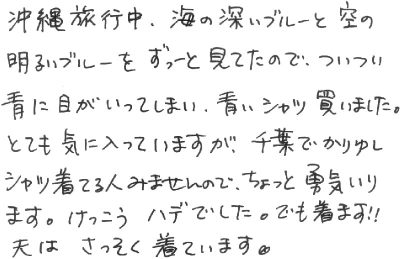 沖縄旅行中、海の深いブルーと空の
明るいブルーをずっーと見てたので、ついつい
青に目がいってしまい、青いシャツ買いました。
とても気に入っていますが、千葉でかりゆし
シャツ着てる人みませんので、ちょっと勇気いり
ます。けっこうハデでした。でも着ます!!
夫はさっそく着ています。